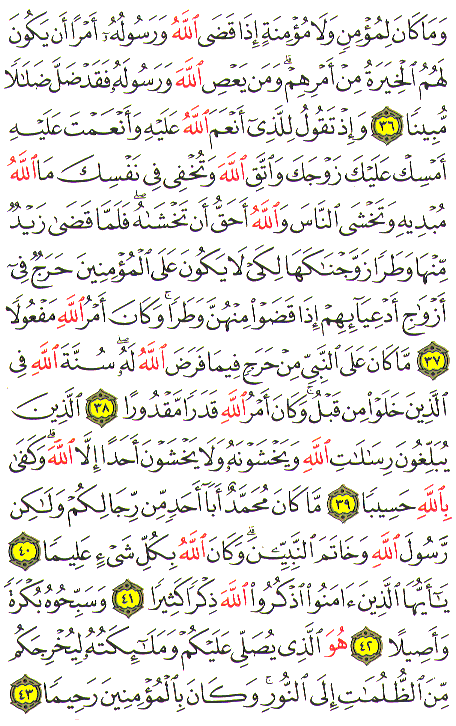 وَمَا كَانَ لِمُؤْمِنٍ وَلَا مُؤْمِنَةٍ إِذَا قَضَى ٱللَّهُ وَرَسُولُهُۥٓ أَمْرًا أَن يَكُونَ
لَهُمُ ٱلْخِيَرَةُ مِنْ أَمْرِهِمْ ۗ وَمَن يَعْصِ ٱللَّهَ وَرَسُولَهُۥ فَقَدْ ضَلَّ ضَلَـٰلًا
مُّبِينًا ٣٦ وَإِذْ تَقُولُ لِلَّذِىٓ أَنْعَمَ ٱللَّهُ عَلَيْهِ وَأَنْعَمْتَ عَلَيْهِ
أَمْسِكْ عَلَيْكَ زَوْجَكَ وَٱتَّقِ ٱللَّهَ وَتُخْفِى فِى نَفْسِكَ مَا ٱللَّهُ
مُبْدِيهِ وَتَخْشَى ٱلنَّاسَ وَٱللَّهُ أَحَقُّ أَن تَخْشَىٰهُ ۖ فَلَمَّا قَضَىٰ زَيْدٌ
مِّنْهَا وَطَرًا زَوَّجْنَـٰكَهَا لِكَىْ لَا يَكُونَ عَلَى ٱلْمُؤْمِنِينَ حَرَجٌ فِىٓ
أَزْوَٰجِ أَدْعِيَآئِهِمْ إِذَا قَضَوْا۟ مِنْهُنَّ وَطَرًا ۚ وَكَانَ أَمْرُ ٱللَّهِ مَفْعُولًا
٣٧ مَّا كَانَ عَلَى ٱلنَّبِىِّ مِنْ حَرَجٍ فِيمَا فَرَضَ ٱللَّهُ لَهُۥ ۖ سُنَّةَ ٱللَّهِ فِى
ٱلَّذِينَ خَلَوْا۟ مِن قَبْلُ ۚ وَكَانَ أَمْرُ ٱللَّهِ قَدَرًا مَّقْدُورًا ٣٨ ٱلَّذِينَ
يُبَلِّغُونَ رِسَـٰلَـٰتِ ٱللَّهِ وَيَخْشَوْنَهُۥ وَلَا يَخْشَوْنَ أَحَدًا إِلَّا ٱللَّهَ ۗ وَكَفَىٰ
بِٱللَّهِ حَسِيبًا ٣٩ مَّا كَانَ مُحَمَّدٌ أَبَآ أَحَدٍ مِّن رِّجَالِكُمْ وَلَـٰكِن
رَّسُولَ ٱللَّهِ وَخَاتَمَ ٱلنَّبِيِّـۧنَ ۗ وَكَانَ ٱللَّهُ بِكُلِّ شَىْءٍ عَلِيمًا ٤٠
يَـٰٓأَيُّهَا ٱلَّذِينَ ءَامَنُوا۟ ٱذْكُرُوا۟ ٱللَّهَ ذِكْرًا كَثِيرًا ٤١ وَسَبِّحُوهُ بُكْرَةً
وَأَصِيلًا ٤٢ هُوَ ٱلَّذِى يُصَلِّى عَلَيْكُمْ وَمَلَـٰٓئِكَتُهُۥ لِيُخْرِجَكُم
مِّنَ ٱلظُّلُمَـٰتِ إِلَى ٱلنُّورِ ۚ وَكَانَ بِٱلْمُؤْمِنِينَ رَحِيمًا ٤٣